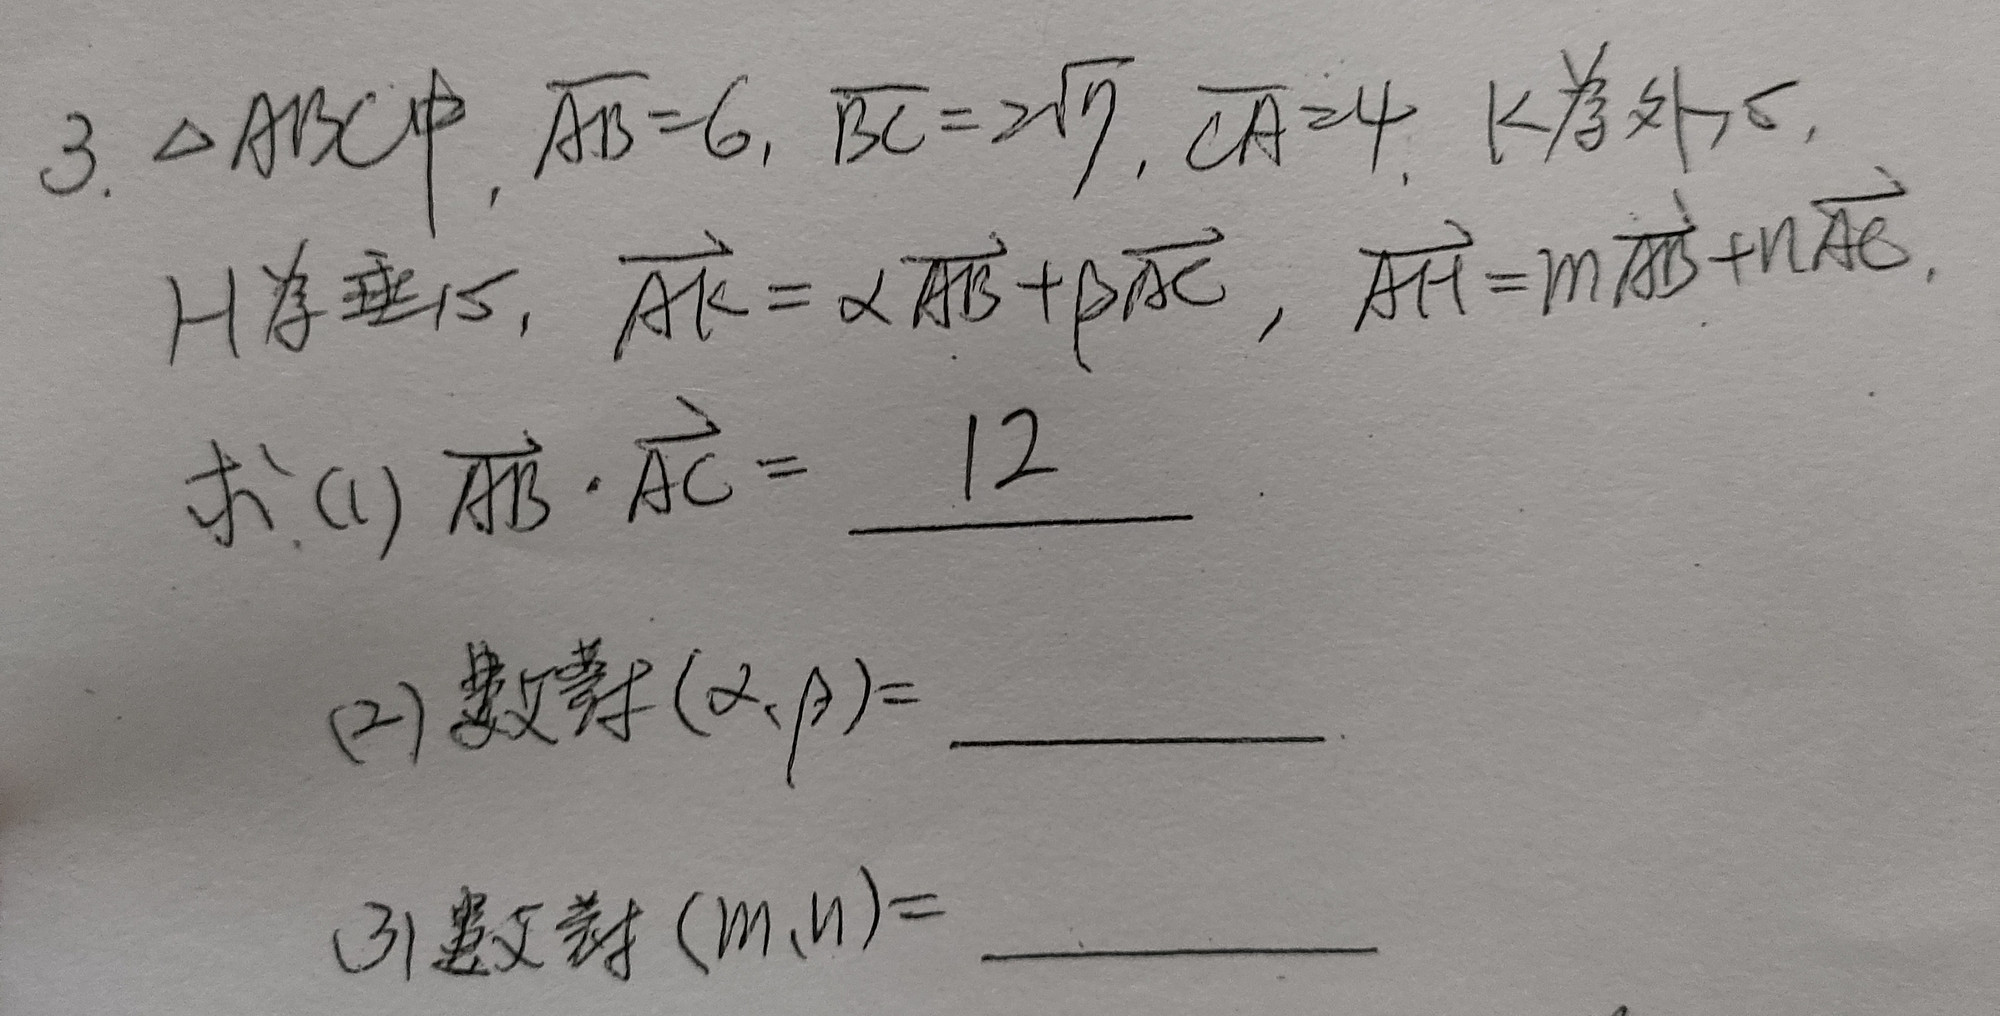 3. △ABC中, AB̅=6, BC̅=2√7, CA̅=4, K為外心,
H為垂心, AK⃗=αAB⃗+βAC⃗, AH⃗=mAB⃗+nAC⃗.
求:(1) AB⃗·AC⃗= 12
(2) 數對(α、β)=
(3) 數對(m、n)=